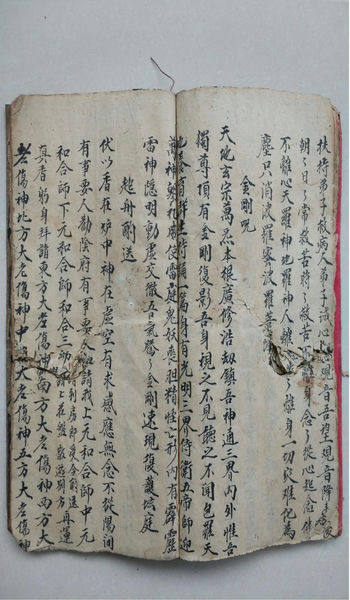 扶持弟子救病人弟子誠心念觀音吾摧觀音降
朝々日々常救苦時々救苦
不離心天羅神地羅神人離難々離身一切災難化為
塵只消波羅密波羅菩薩
金剛咒
天地玄宗萬炁本根廣修浩劫鎮吾神通三界內外惟吾
獨尊頂有金剛復影吾身現之不見聽之不聞包羅天
地養育群生持誦一篇身有光明三界侍衛五帝師迎
萬神朝礼役使雷庭鬼妖喪胆精怪亡形內有霹靂
雷神隱明動虛交徹五气騰々金剛速現復護法庭
起舟酌送
伏以香在炉中神在虛空有求感應無念不從陽間
有事要人勸陰府有事要人和請我上元和合師中元
和合師下元和合師和合三師
真香躬身拜請東方大老傷神南方大老傷神西方大
老傷神北方大老傷神中方大老傷神五方大老傷神